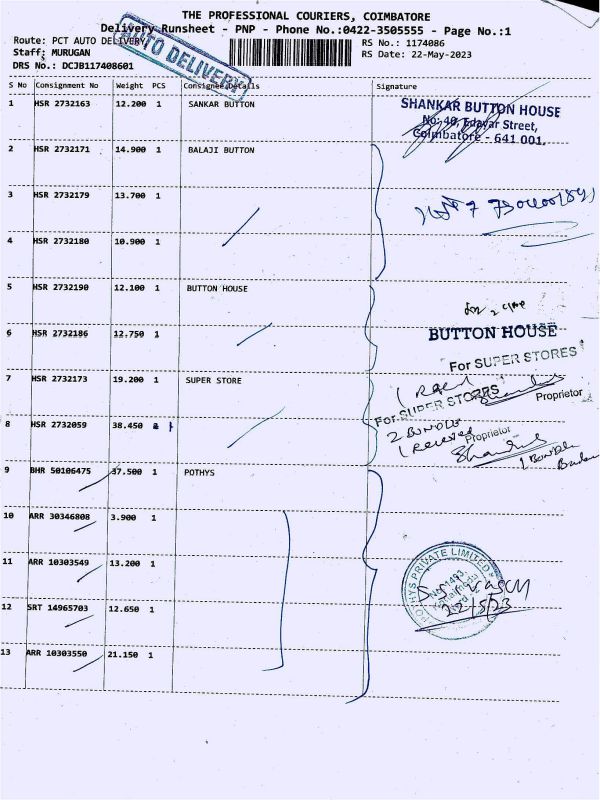 THE PROFESSIONAL COURIERS, COIMBATORE
Delivery Runsheet - PNP - Phone No.:0422-3505555 - Page No.:1
Route: PCT AUTO DELIVERY
RS No.: 1174086
Staff: MURUGAN
RS Date: 22-May-2023
DRS No.: DCJB117408601
AUTO DELIVERY
S No Consignment No Weight PCS Consignee Details Signature
1 HSR 2732163 12.200 1 SANKAR BUTTON
SHANKAR BUTTON HOUSE
No: 40, Edayar Street,
Coimbatore - 641 001.
2 HSR 2732171 14.900 1 BALAJI BUTTON
3 HSR 2732179 13.700 1
4 HSR 2732180 10.900 1
5 HSR 2732190 12.100 1 BUTTON HOUSE
BUTTON HOUSE
6 HSR 2732186 12.750 1
For SUPER STORES
7 HSR 2732173 19.200 1 SUPER STORE
Proprietor
For SUPER STORES
8 HSR 2732059 38.450 2 1
2 BUNDLE
1 Received
Proprietor
1 Bundle
9 BHR 50106475 37.500 1 POTHYS
10 ARR 30346808 3.900 1
11 ARR 10303549 13.200 1
POTHYS PRIVATE LIMITED
22/5/23
12 SRT 14965703 12.650 1
13 ARR 10303550 21.150 1